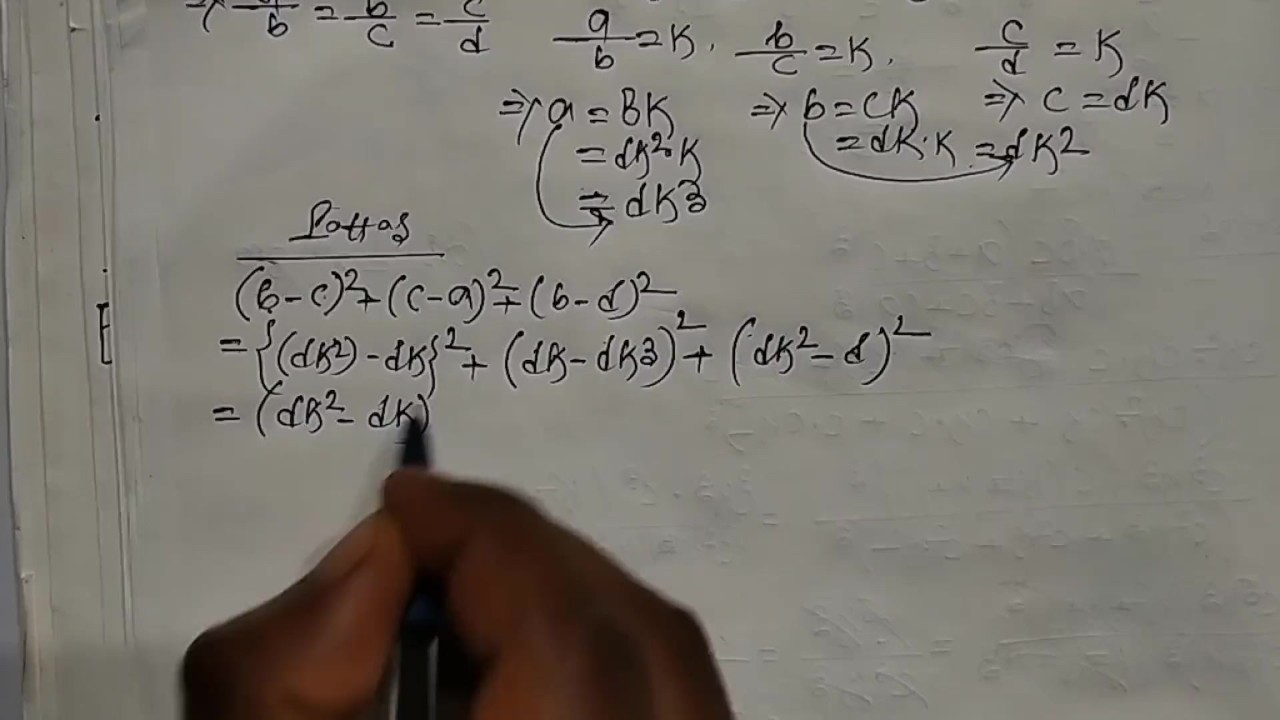 ⇒ a/b = b/c = c/d
a/b = K, b/c = K, c/d = K
⇒ a = BK ⇒ b = CK ⇒ c = dK
= dK²·K = dK·K = dK2
= dK3
(b-c)²+(c-a)²+(b-d)²
= {(dK²)-dK}²+(dK-dK3)²+(dK²-d)²
= (dK²-dK)